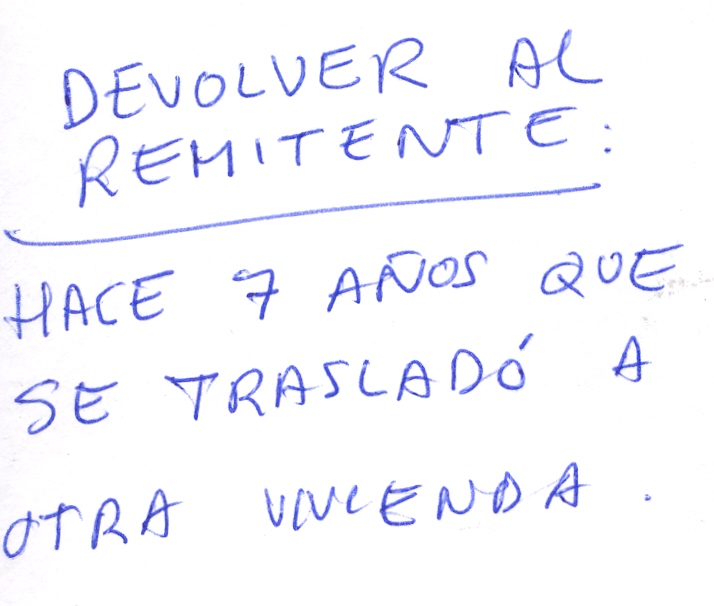 DEVOLVER AL
REMITENTE:
HACE 7 AÑOS QUE
SE TRASLADÓ A
OTRA VIVIENDA.